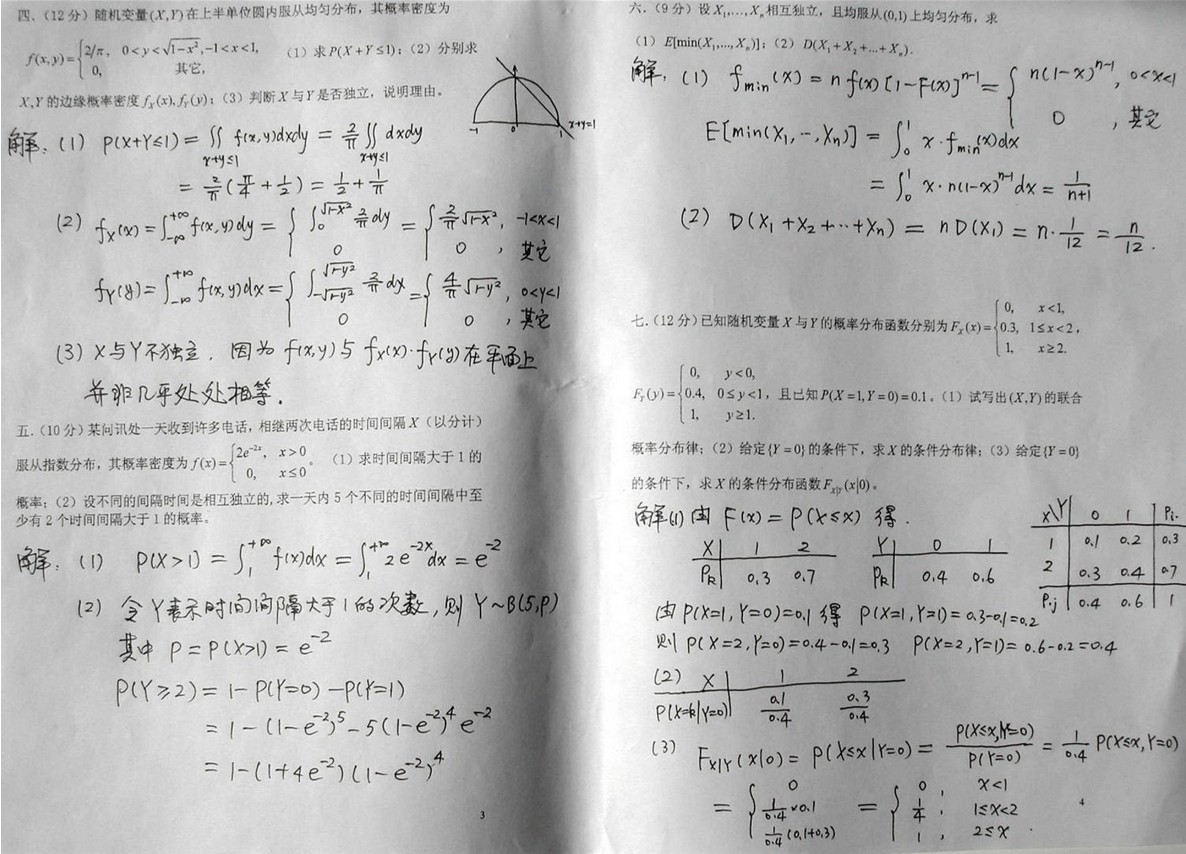 四.（12分）随机变量(X,Y)在上半单位圆内服从均匀分布，其概率密度为
f(x,y)={2/π, 0<y<√(1-x²),-1<x<1,
0, 其它,
（1）求P(X+Y≤1)；（2）分别求
X,Y的边缘概率密度f_X(x),f_Y(y)；（3）判断X与Y是否独立，说明理由。
-1 0 1 x+y=1
解：(1) P(X+Y≤1)=∬_{x+y≤1} f(x,y)dxdy = 2/π ∬_{x+y≤1} dxdy
= 2/π (π/4 + 1/2) = 1/2 + 1/π
(2) f_X(x)=∫_{-∞}^{+∞} f(x,y)dy = { ∫_0^{√(1-x²)} 2/π dy = { 2/π √(1-x²), -1<x<1
0 0 , 其它
f_Y(y)=∫_{-∞}^{+∞} f(x,y)dx = { ∫_{-√(1-y²)}^{√(1-y²)} 2/π dx = { 4/π √(1-y²), 0<y<1
0 0 , 其它
(3) X与Y不独立. 因为 f(x,y)与 f_X(x)·f_Y(y)在平面上
并非几乎处处相等.
五.（10分）某问讯处一天收到许多电话，相继两次电话的时间间隔X（以分计）
服从指数分布，其概率密度为f(x)={2e^{-2x}, x>0
0, x≤0 。（1）求时间间隔大于1的
概率；（2）设不同的间隔时间是相互独立的,求一天内5个不同的时间间隔中至
少有2个时间间隔大于1的概率。
解：(1) P(X>1) = ∫_1^{+∞} f(x)dx = ∫_1^{+∞} 2e^{-2x}dx = e^{-2}
(2) 令Y表示时间间隔大于1的次数, 则 Y~B(5,P)
其中 P=P(X>1) = e^{-2}
P(Y≥2) = 1-P(Y=0) -P(Y=1)
= 1-(1-e^{-2})^5 -5(1-e^{-2})^4 e^{-2}
= 1-(1+4e^{-2})(1-e^{-2})^4
3
六.（9分）设X₁,...,Xₙ相互独立，且均服从(0,1)上均匀分布，求
（1）E[min(X₁,...,Xₙ)]；（2）D(X₁+X₂+...+Xₙ).
解：(1) f_min(x) = n f(x) [1-F(x)]^{n-1} = { n(1-x)^{n-1}, 0<x<1
0 , 其它
E[min(X₁,…,Xₙ)] = ∫_0^1 x·f_min(x)dx
= ∫_0^1 x·n(1-x)^{n-1}dx = 1/(n+1)
(2) D(X₁+X₂+…+Xₙ) = nD(X₁) = n·1/12 = n/12.
七.（12分）已知随机变量X与Y的概率分布函数分别为F_X(x)={0, x<1,
0.3, 1≤x<2,
1, x≥2.
F_Y(y)={0, y<0,
0.4, 0≤y<1,
1, y≥1.
且已知P(X=1,Y=0)=0.1。（1）试写出(X,Y)的联合
概率分布律；（2）给定{Y=0}的条件下，求X的条件分布律；（3）给定{Y=0}
的条件下，求X的条件分布函数F_{X|Y}(x|0)。
解(1) 由 F(x) = P(X≤x) 得.
X 1 2
P_k 0.3 0.7
Y 0 1
P_k 0.4 0.6
X\Y 0 1 Pi.
1 0.1 0.2 0.3
2 0.3 0.4 0.7
P.j 0.4 0.6 1
由P(X=1,Y=0)=0.1 得 P(X=1,Y=1)=0.3-0.1=0.2
则 P(X=2,Y=0)=0.4-0.1=0.3 P(X=2,Y=1)=0.6-0.2=0.4
(2) X 1 2
P(X=k|Y=0) 0.1/0.4 0.3/0.4
(3) F_{X|Y}(x|0) = P(X≤x|Y=0) = P(X≤x,Y=0)/P(Y=0) = 1/0.4 P(X≤x,Y=0)
= { 0 = { 0, x<1
1/0.4 ×0.1 1/4, 1≤x<2
1/0.4 (0.1+0.3) 1, 2≤x.
4